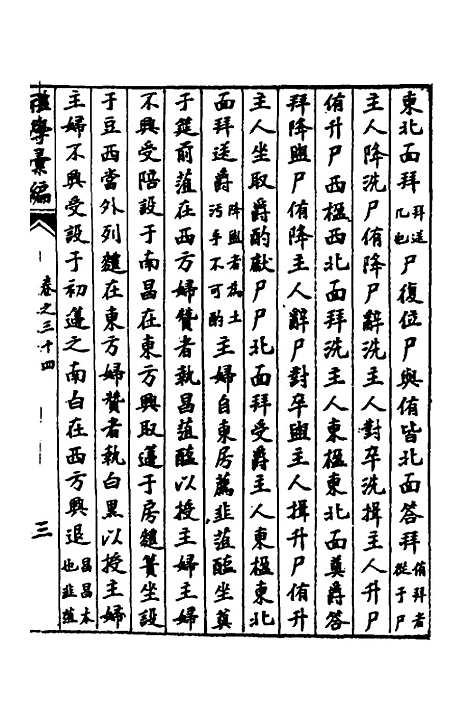 東北面拜拜送几也尸復位尸與侑皆北面答拜侑拜者從于尸
主人降洗尸侑降尸辭洗主人對卒洗揖主人升尸
侑升尸西楹西北面拜洗主人東楹東北面奠爵答
拜降盥尸侑降主人辭尸對卒盥主人揖升尸侑升
主人坐取爵酌獻尸尸北面拜受爵主人東楹東北
面拜送爵降盥者為土污手不可酌主婦自東房薦韭菹醢坐奠
于筵前菹在西方婦贊者執昌菹醢以授主婦主婦
不興受陪設于南昌在東方興取籩于房麷蕡坐設
于豆西當外列麷在東方婦贊者執白黑以授主婦
主婦不興受設于初籩之南白在西方興退昌昌本也韭菹
禮學彙編
卷之三十四
三